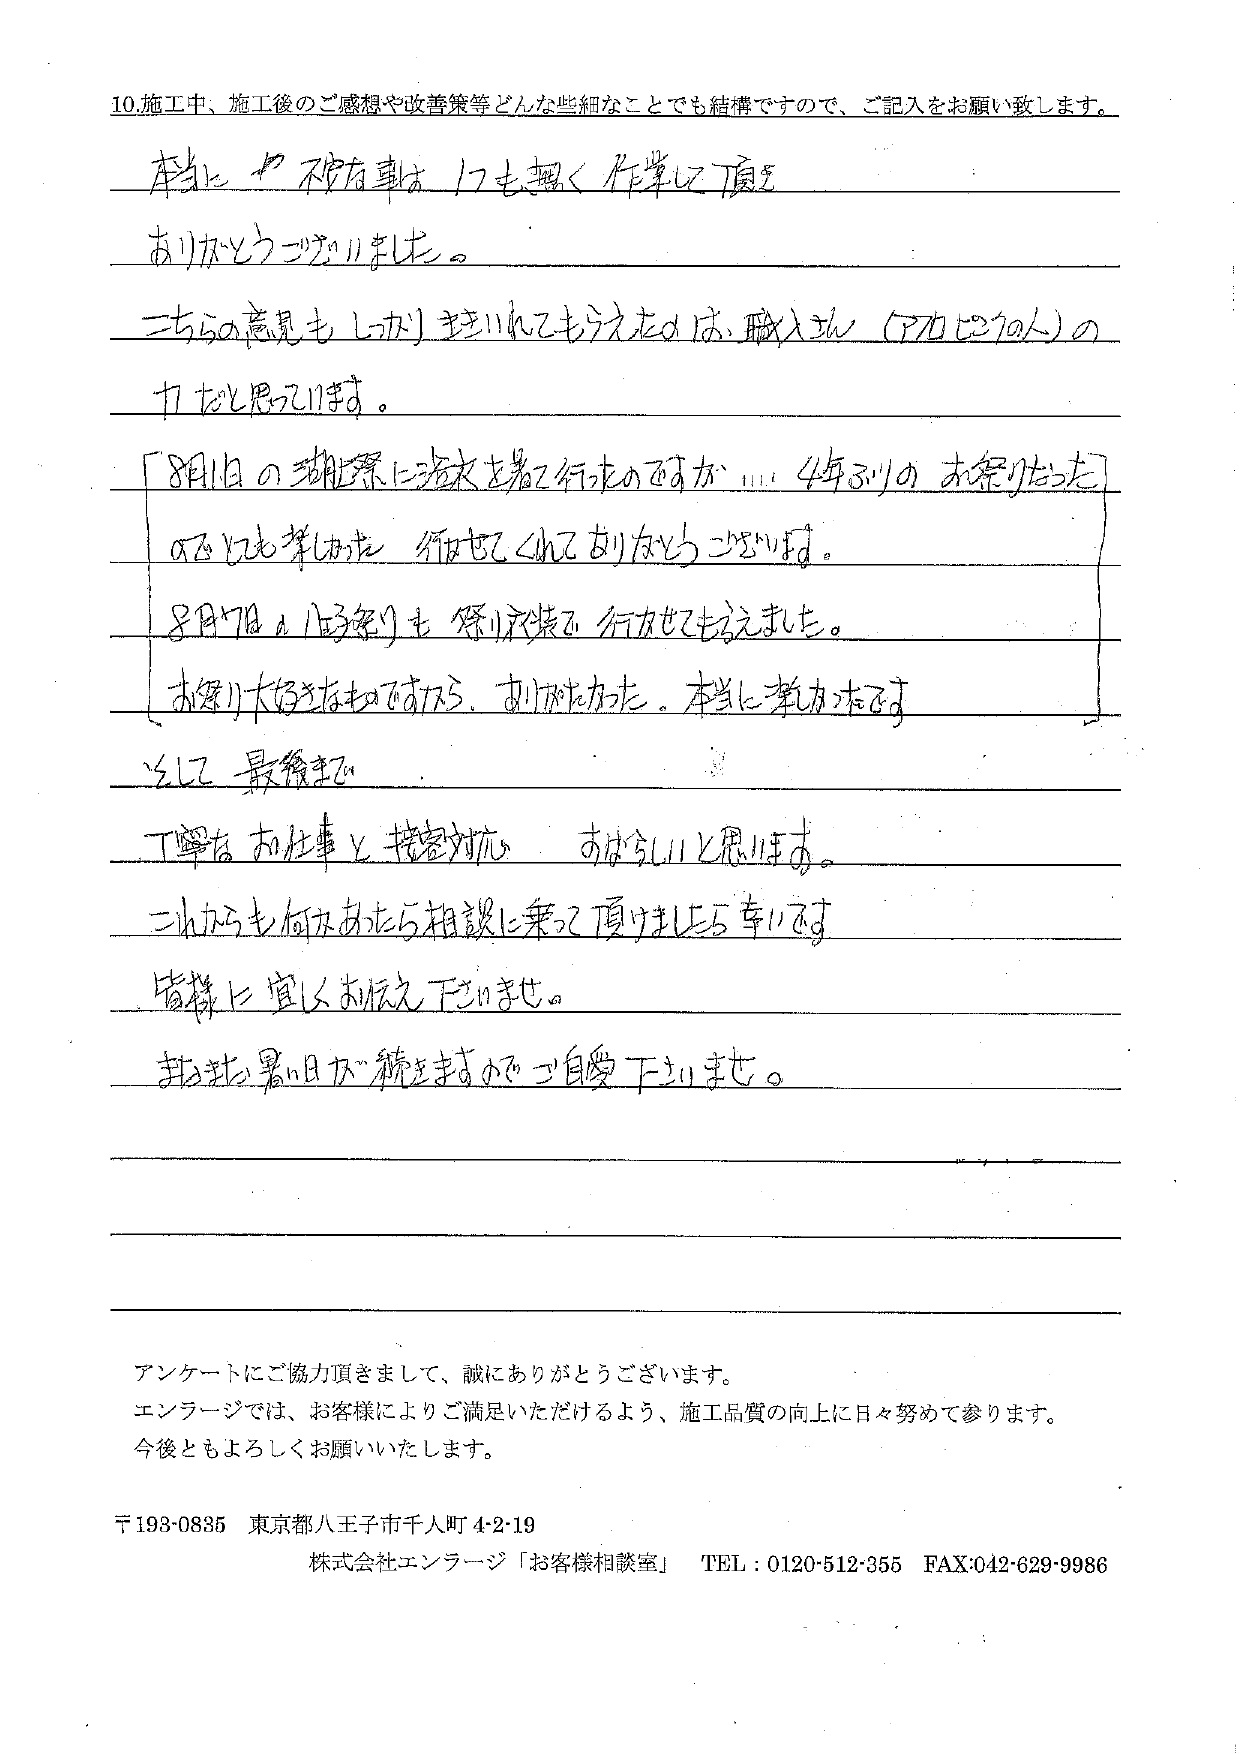 10.施工中、施工後のご感想や改善策等どんな些細なことでも結構ですので、ご記入をお願い致します。
本当に 不安な事は 1つも無く 作業して頂き
ありがとうございました。
こちらの意見も しっかり ききいれてもらえたのは、職人さん (アフロ ピンクの人) の
力 だと思っています。
「8月1日 の 湖上祭に浴衣を着て行ったのですが ..... 4年ぶりの お祭りだった
のでとても楽しかった 行かせてくれてありがとうございます。
8月7日の 八王子祭りも 祭り衣装で 行かせてもらえました。
お祭り大好きなものですから、ありがたかった。本当に楽しかったです」
そして 最後まで
丁寧な お仕事と 接客対応 すばらしいと思います。
これからも何かあったら相談に乗って頂けましたら幸いです
皆様に 宜しくお伝え下さいませ。
まだまだ暑い日が続きますのでご自愛下さいませ。
アンケートにご協力頂きまして、誠にありがとうございます。
エンラージでは、お客様によりご満足いただけるよう、施工品質の向上に日々努めて参ります。
今後ともよろしくお願いいたします。
〒193-0835 東京都八王子市千人町 4-2-19
株式会社エンラージ「お客様相談室」 TEL : 0120-512-355 FAX:042-629-9986